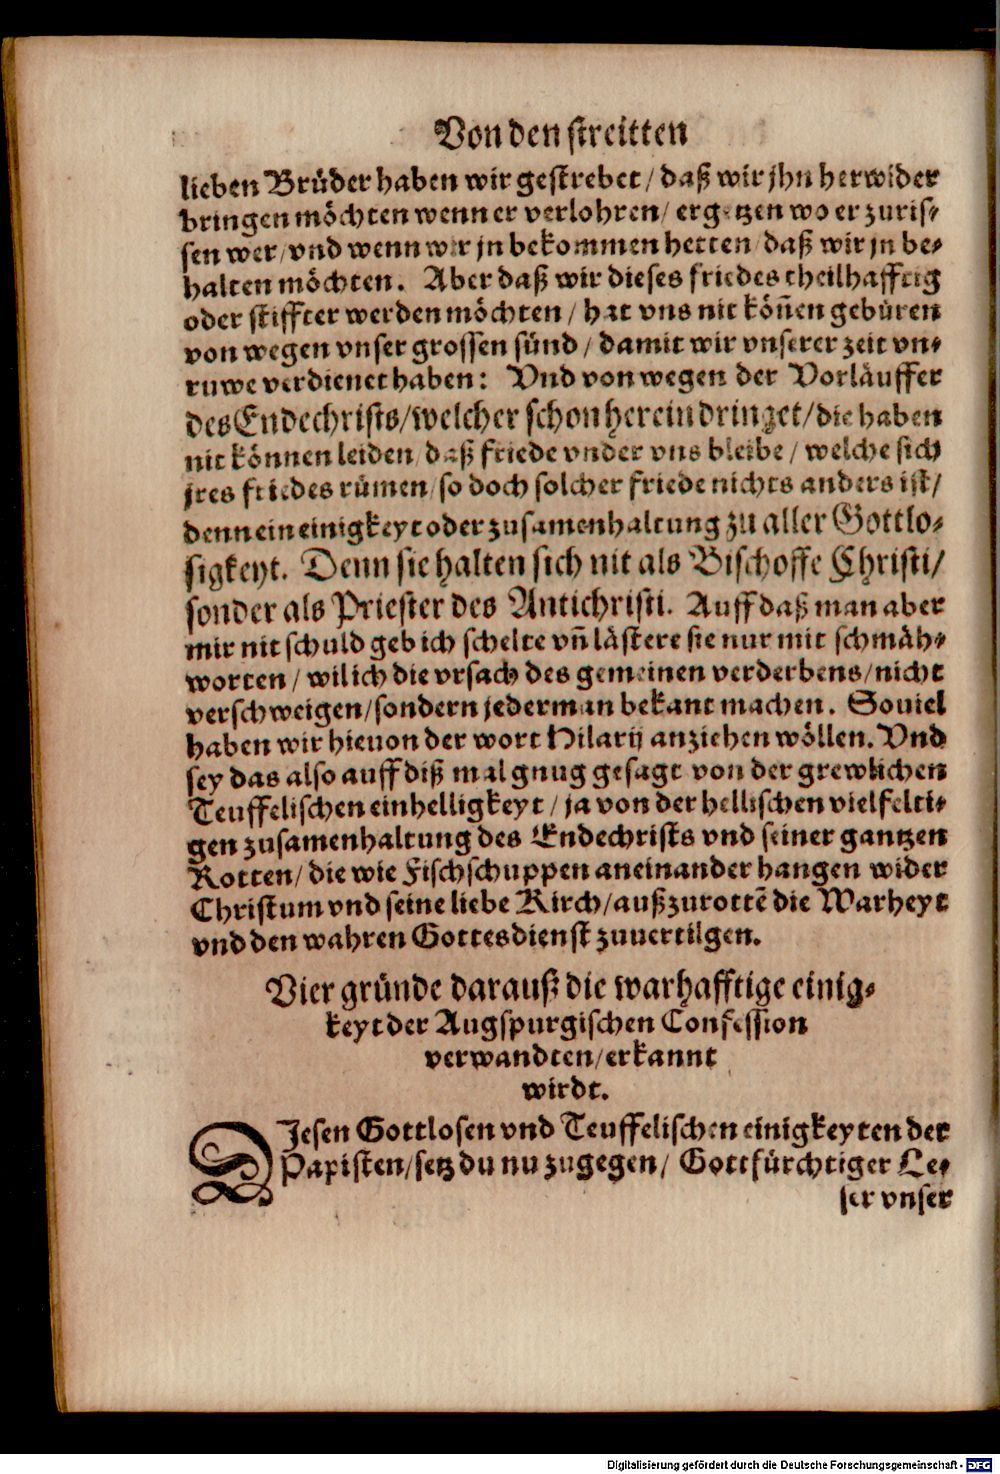 Von den streitten
lieben Brüder haben wir gestrebet / daß wir jhn herwider
bringen möchten wenn er verlohren / ergetzen wo er zuris-
sen wer / vnd wenn wir jn bekommen hetten / daß wir jn be-
halten möchten. Aber daß wir dieses friedes theilhafftig
oder stiffter werden möchten / hat vns nit köñen gebüren
von wegen vnser grossen sünd / damit wir vnserer zeit vn-
ruwe verdienet haben: Vnd von wegen der Vorläuffer
des Endechrists / welcher schon herein dringet / die haben
nit können leiden / daß friede vnder vns bleibe / welche sich
jres friedes rümen / so doch solcher friede nichts anders ist /
denn ein einigkeyt oder zusamenhaltung zu aller Gottlo-
sigkeyt. Denn sie halten sich nit als Bischoffe Christi /
sonder als Priester des Antichristi. Auff daß man aber
mir nit schuld geb ich schelte vñ lästere sie nur mit schmäh-
worten / wil ich die vrsach des gemeinen verderbens / nicht
verschweigen / sondern jederman bekant machen. Souiel
haben wir hieuon der wort Hilarij anziehen wöllen. Vnd
sey das also auff diß mal gnug gesagt von der grewlichen
Teuffelischen einhelligkeyt / ja von der hellischen vielfelti-
gen zusamenhaltung des Endechrists vnd seiner gantzen
Rotten / die wie Fischschuppen aneinander hangen wider
Christum vnd seine liebe Kirch / außzurottẽ die Warheyt
vnd den wahren Gottesdienst zuuertilgen.
Vier gründe darauß die warhafftige einig-
keyt der Augspurgischen Confession
verwandten / erkannt
wirdt.
DJesen Gottlosen vnd Teuffelischen einigkeyten der
Papisten / setz du nu zugegen / Gottfürchtiger Le-
ser vnser
Digitalisierung gefördert durch die Deutsche Forschungsgemeinschaft - DFG